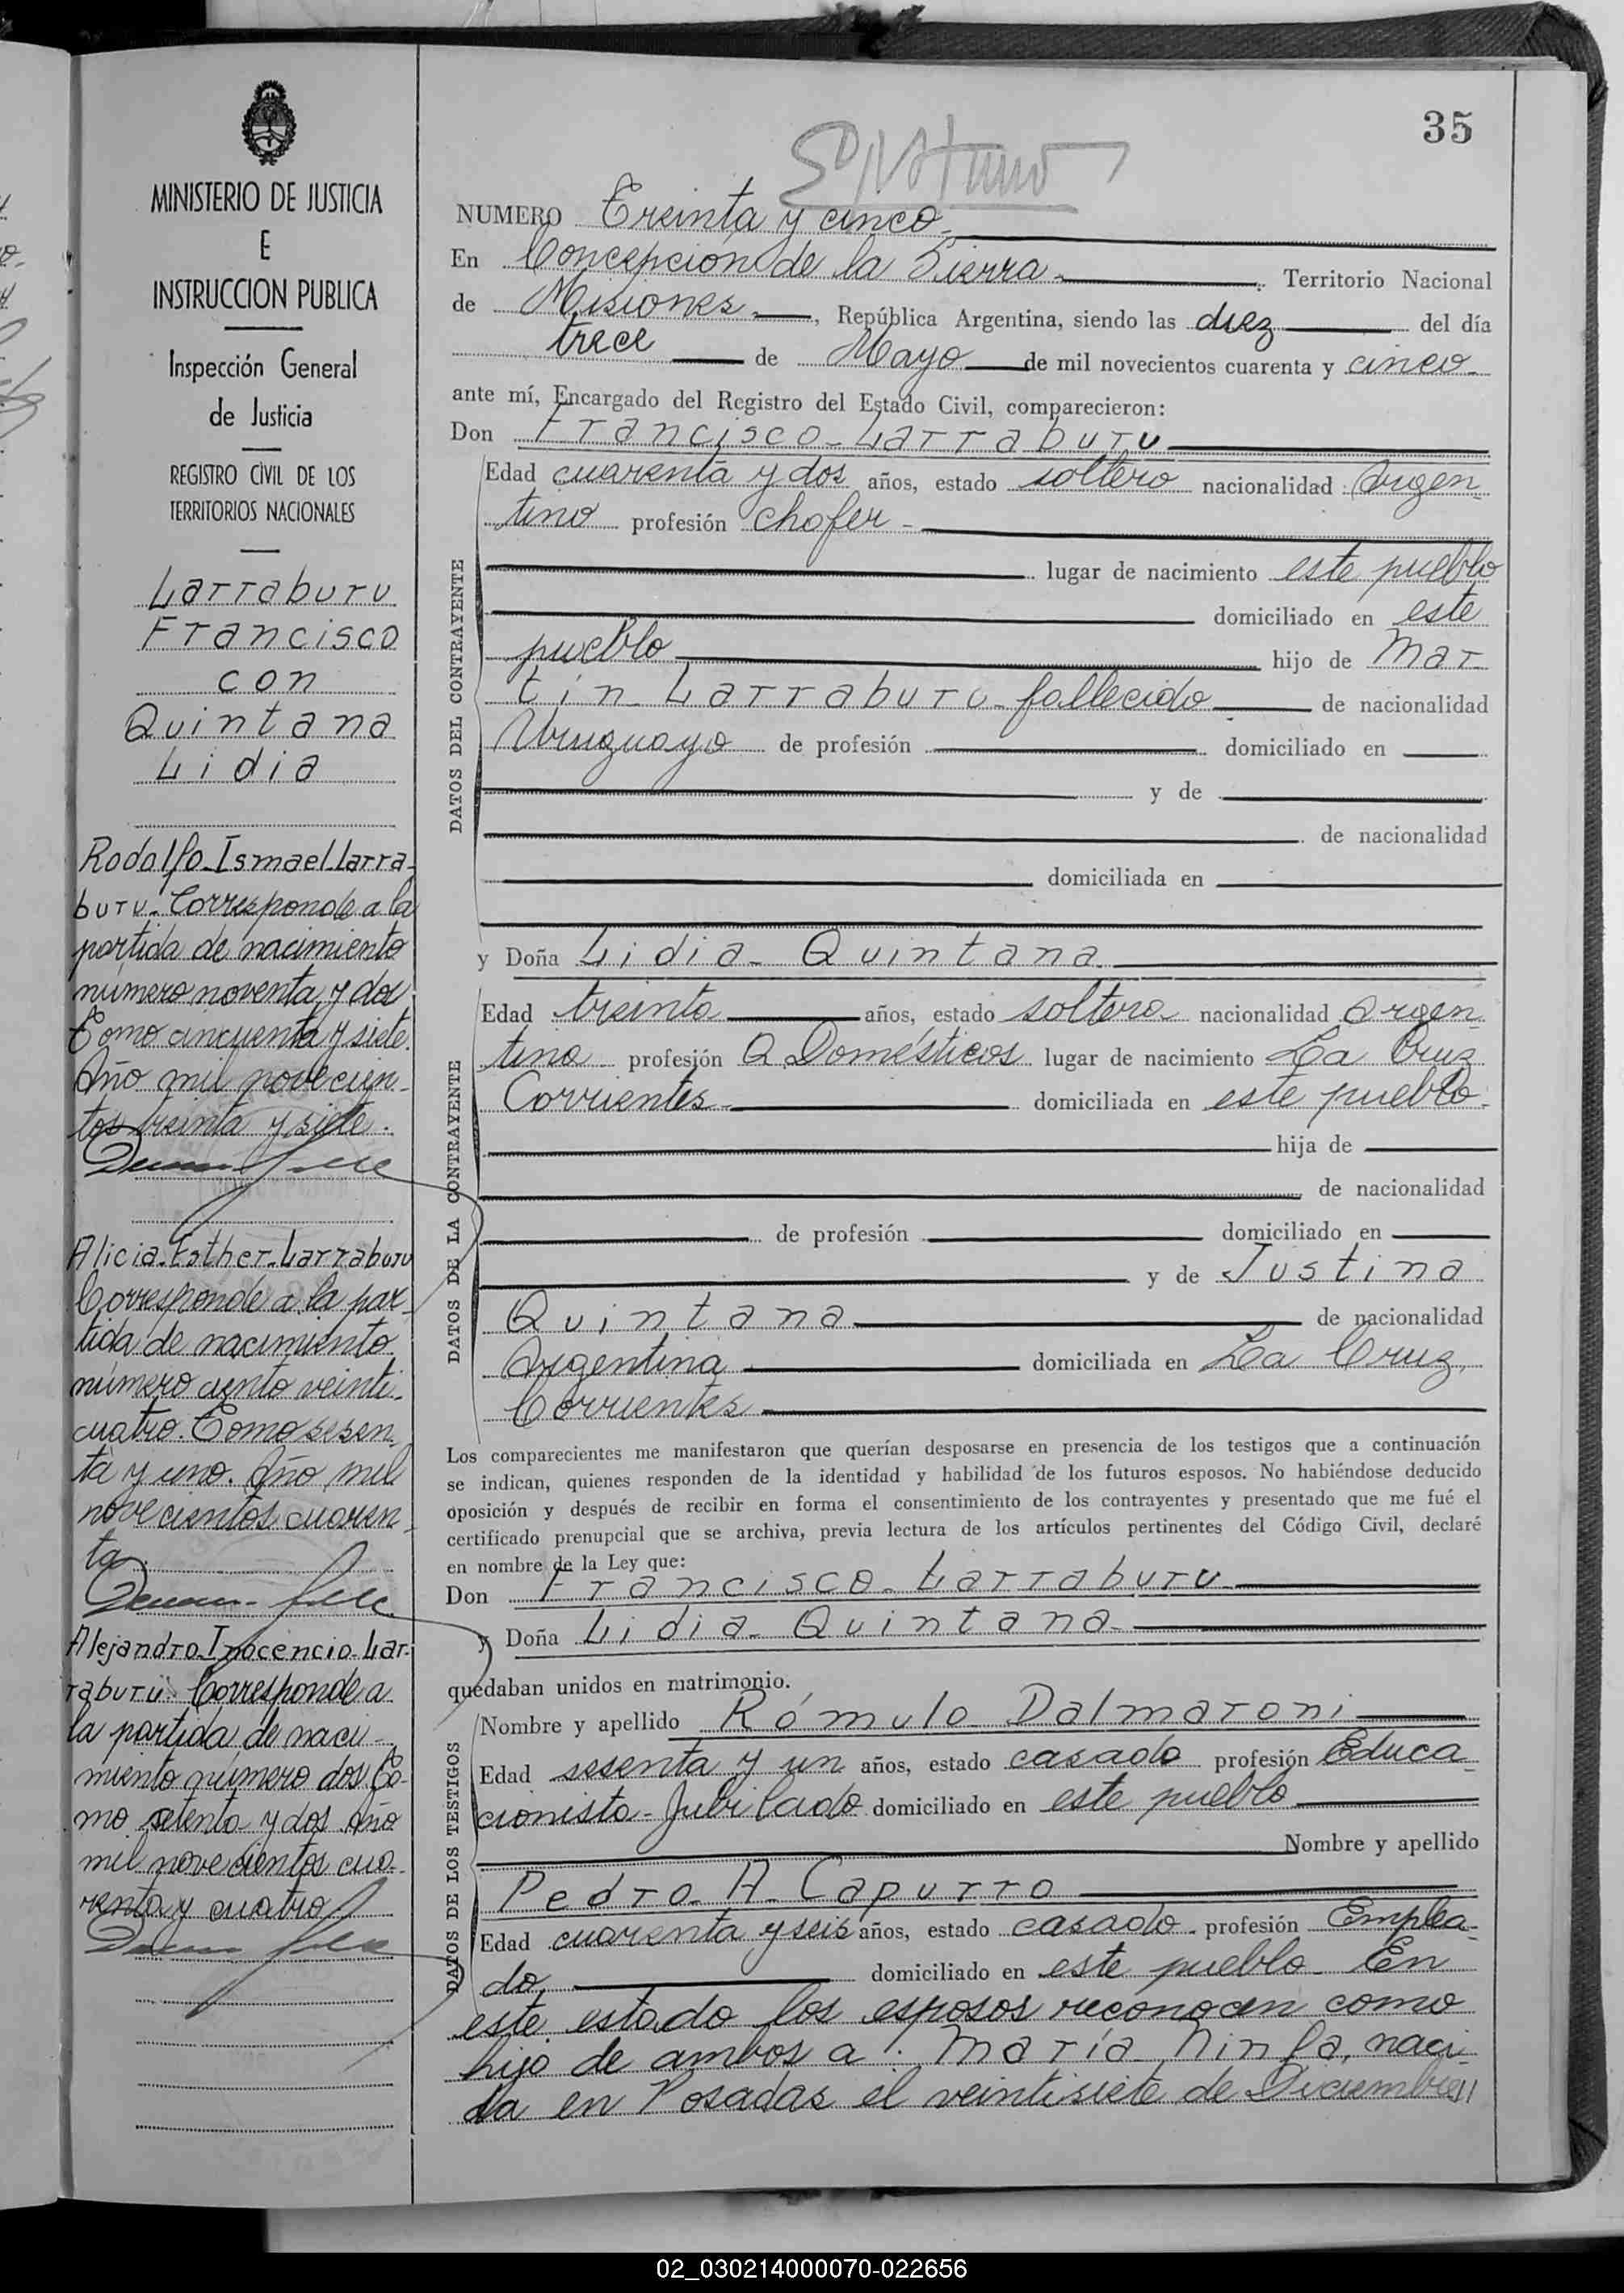 35
NUMERO Treinta y cinco
En Concepción de la Sierra. Territorio Nacional
de Misiones, República Argentina, siendo las diez del día
trece de Mayo de mil novecientos cuarenta y cinco
ante mí, Encargado del Registro del Estado Civil, comparecieron:
Don Francisco Larraburu
DATOS DEL CONTRAYENTE
Edad cuarenta y dos años, estado soltero nacionalidad Argen-
tino profesión Chofer
lugar de nacimiento este pueblo
domiciliado en este
pueblo hijo de Mar
tin Larraburu fallecido de nacionalidad
Uruguayo de profesión domiciliado en
y de
de nacionalidad
domiciliada en
y Doña Lidia Quintana
DATOS DE LA CONTRAYENTE
Edad treinta años, estado soltera nacionalidad Argen
tina profesión Q. Domésticos lugar de nacimiento La Cruz
Corrientes domiciliada en este pueblo.
hija de
de nacionalidad
de profesión domiciliado en
y de Justina
Quintana de nacionalidad
Argentina domiciliada en La Cruz,
Corrientes
Los comparecientes me manifestaron que querían desposarse en presencia de los testigos que a continuación
se indican, quienes responden de la identidad y habilidad de los futuros esposos. No habiéndose deducido
oposición y después de recibir en forma el consentimiento de los contrayentes y presentado que me fué el
certificado prenupcial que se archiva, previa lectura de los artículos pertinentes del Código Civil, declaré
en nombre de la Ley que:
Don Francisco Larraburu
y Doña Lidia Quintana
quedaban unidos en matrimonio.
DATOS DE LOS TESTIGOS
Nombre y apellido Rómulo Dalmaroni
Edad sesenta y un años, estado casado profesión Educa
cionista Jubilado domiciliado en este pueblo
Nombre y apellido
Pedro A. Capurro
Edad cuarenta y seis años, estado casado profesión Emplea-
do, domiciliado en este pueblo En
este estado los esposos reconocen como
hijo de ambos a: María Ninfa, naci-
da en Posadas el veintisiete de Diciembre//
MINISTERIO DE JUSTICIA
E
INSTRUCCION PUBLICA
Inspección General
de Justicia
REGISTRO CIVIL DE LOS
TERRITORIOS NACIONALES
Larraburu
Francisco
con
Quintana
Lidia
Rodolfo Ismael Larra-
buru. Corresponde a la
partida de nacimiento
número noventa y dos
Tomo cincuenta y siete.
Año mil novecien-
tos treinta y siete.
Alicia Esther Larraburu
Corresponde a la par-
tida de nacimiento
número ciento veinti-
cuatro. Tomo sesen-
ta y uno. Año mil
novecientos cuaren-
ta.
Alejandro Inocencio Lar-
raburu. Corresponde a
la partida de naci-
miento número dos To-
mo setenta y dos Año
mil novecientos cua-
renta y cuatro
02_030214000070-022656